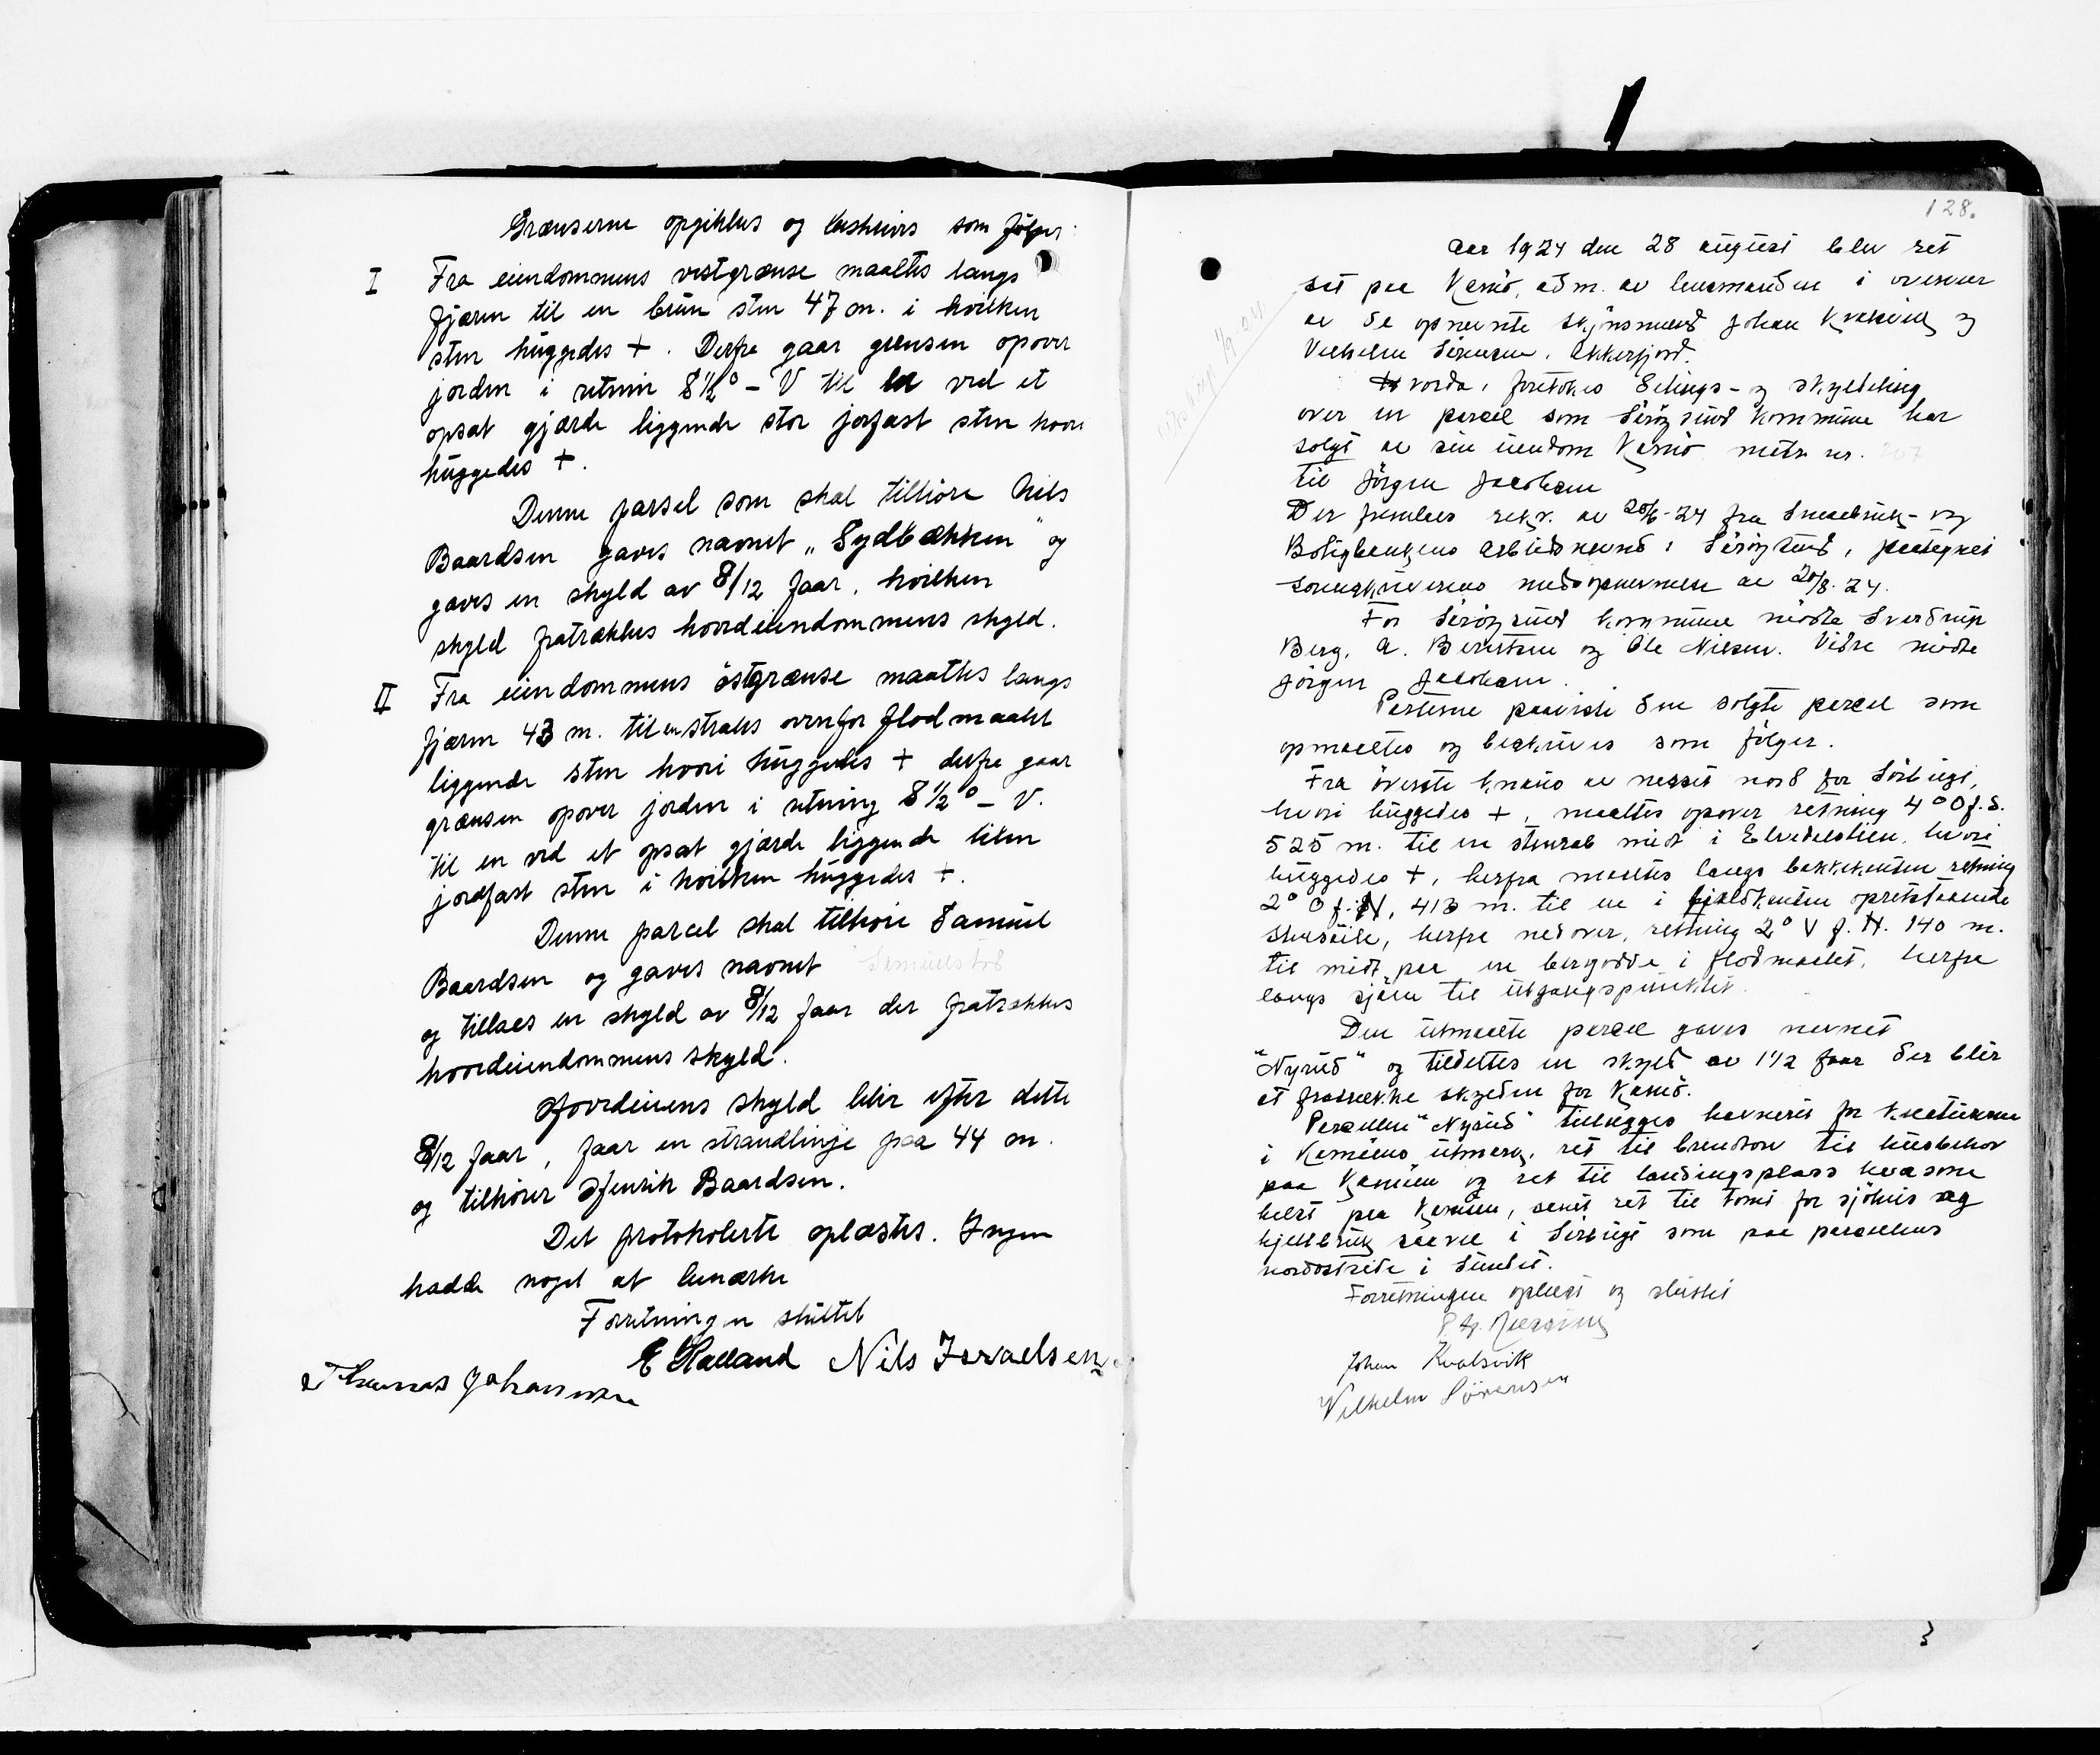 Grænserne opgikkes og beskrives som følger:
I Fra eiendommens vestgrænse maaltes langs
fjæren til en brun sten 47 m. i hvilken
sten huggedes +. Derfra gaar grensen opover
jorden i retnin 8½° - V til en ved et
opsat gjærde liggende stor jorfast sten hvori
huggedes +.
Denne parsel som skal tilhöre Nils
Baardsen gaves navnet „Sydbækken" og
gaves en skyld av 8/12 faar, hvilken
skyld fratrækkes hovedeiendommens skyld.
II Fra eiendommens östgrænse maaltes langs
fjæren 43 m. til en straks ovenfor flodmaalet
liggende sten hvori huggedes + derfra gaar
grænsen opover jorden i retning 8½° - V.
til en ved et opsat gjærde liggende liten
jordfast sten i hvilken huggedes +.
Denne parcel skal tilhöre Samuel
Baardsen og gaves navnet
og tillaes en skyld av 8/12 faar der fratrækkes
hovedeiendommens skyld.
Hovedeiens skyld blir efter dette
8/12 faar, faar en strandlinje paa 44 m.
og tilhörer Henrik Baardsen.
Det protokolerte oplæstes. Ingen
hadde noget at bemærke
Forretningen sluttet
E Halland Nils Israelsen
Thomas Johannsen
128.
Aar 1924 den 28 august blev ret
sat paa Kamö, adm. av lensmanden i overvær
av de opnevnte skjönsmend Johan Kvalsvik og
Vilhelm Sörensen, Akkerfjord.
Hvorda, foretokes delings- og skylddeling
over en parcel som Söröysund kommune har
solgt av sin eiendom Kamö matr. nr. 207
til Jörgen Jacobsen
Der fremlaes rekv. av 20/6-24 fra Smaabruk- og
Boligbankens arbeidsnevnd i Söröysund, paategnet
sorenskriverens medopnevnelse av 20/8.24.
For Söröysund kommune mödte Sverdrup
Berg, A. Berntsen og Ole Nilsen. Videre mödte
Jörgen Jacobsen.
Parterne paaviste den solgte parcel som
opmaaltes og beskrives som fölger.
Fra överste knaus av nesset nord for Sörbugt,
hvori huggedes +, maaltes opover retning 4° Ö f. S.
525 m. til en stenrab midt i Elvedalslien, hvori
huggedes +, herfra maaltes langs bakkekanten retning
2° Ö f. N, 413 m. til en i fjeldkanten opretstaaende
, herfra nedover, retning 2° V f. N. 140 m.
til midt paa en bergodde i flodmaalet, herfra
langs sjöen til utgangspunktet.
Den utmaalte parcel gaves navnet
"Nyrud" og tildeltes en skyld av 1½ faar der blir
at fratrekke skylden for Kamö.
Parcellen "Nyrud" tillegges havneret for kreaturerne
i Kamöens utmark, ret til brendtorv til husbehov
paa Kamöen og ret til landingsplass hvorsom
helst paa Kamöen, samt ret til tomt for sjöhus og
hjellbruk saavel i Sörbugt som paa parcellens
nordostside i Sundet.
Forretningen oplæst og sluttet
Johan Kvalsvik
Vilhelm Sörensen